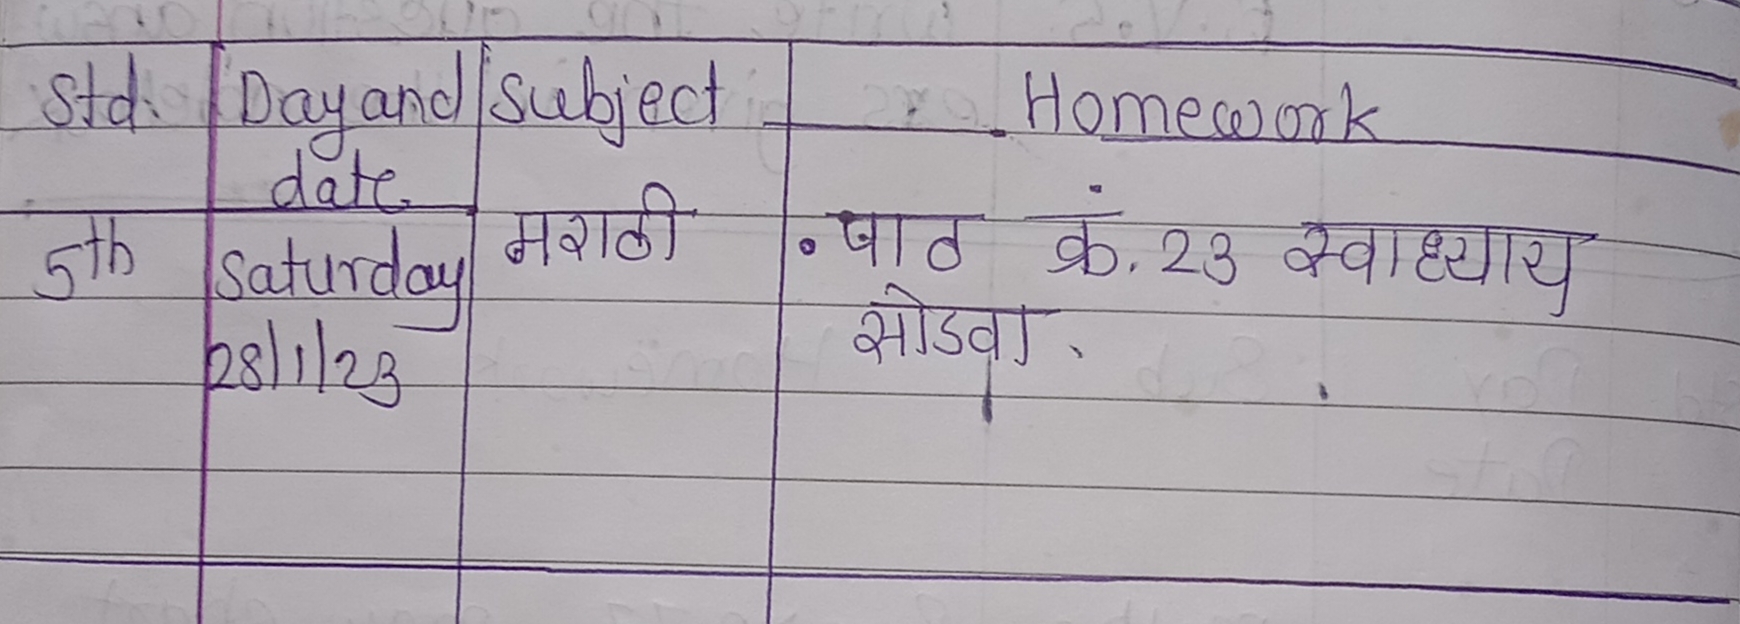 Std. Day and Subject Homework
date
5th Saturday मराठी • पाठ क्रं. 23 स्वाध्याय
28/1/23 सोडवा.